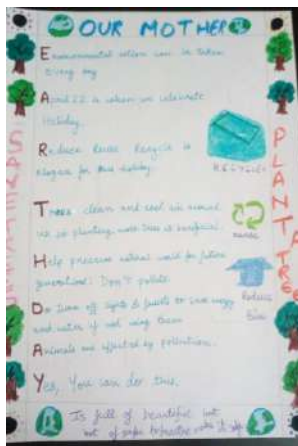 OUR MOTHER
Environmental action can be taken
Every day
April 22 is when we celebrate
Holiday.
Reduce Reuse Recycle is
Slogan for this holiday.
RECYCLE
Trees clean and cool air around
us so planting more trees is beneficial
REUSE
Help preserve natural world for future
generations: Don't pollute.
Reduce
Do turn off lights & faucets to save energy
and water if not using them
Animals are affected by pollution.
Yes, You can do this.
Is full of beautiful but
out of
PLANT A TREE